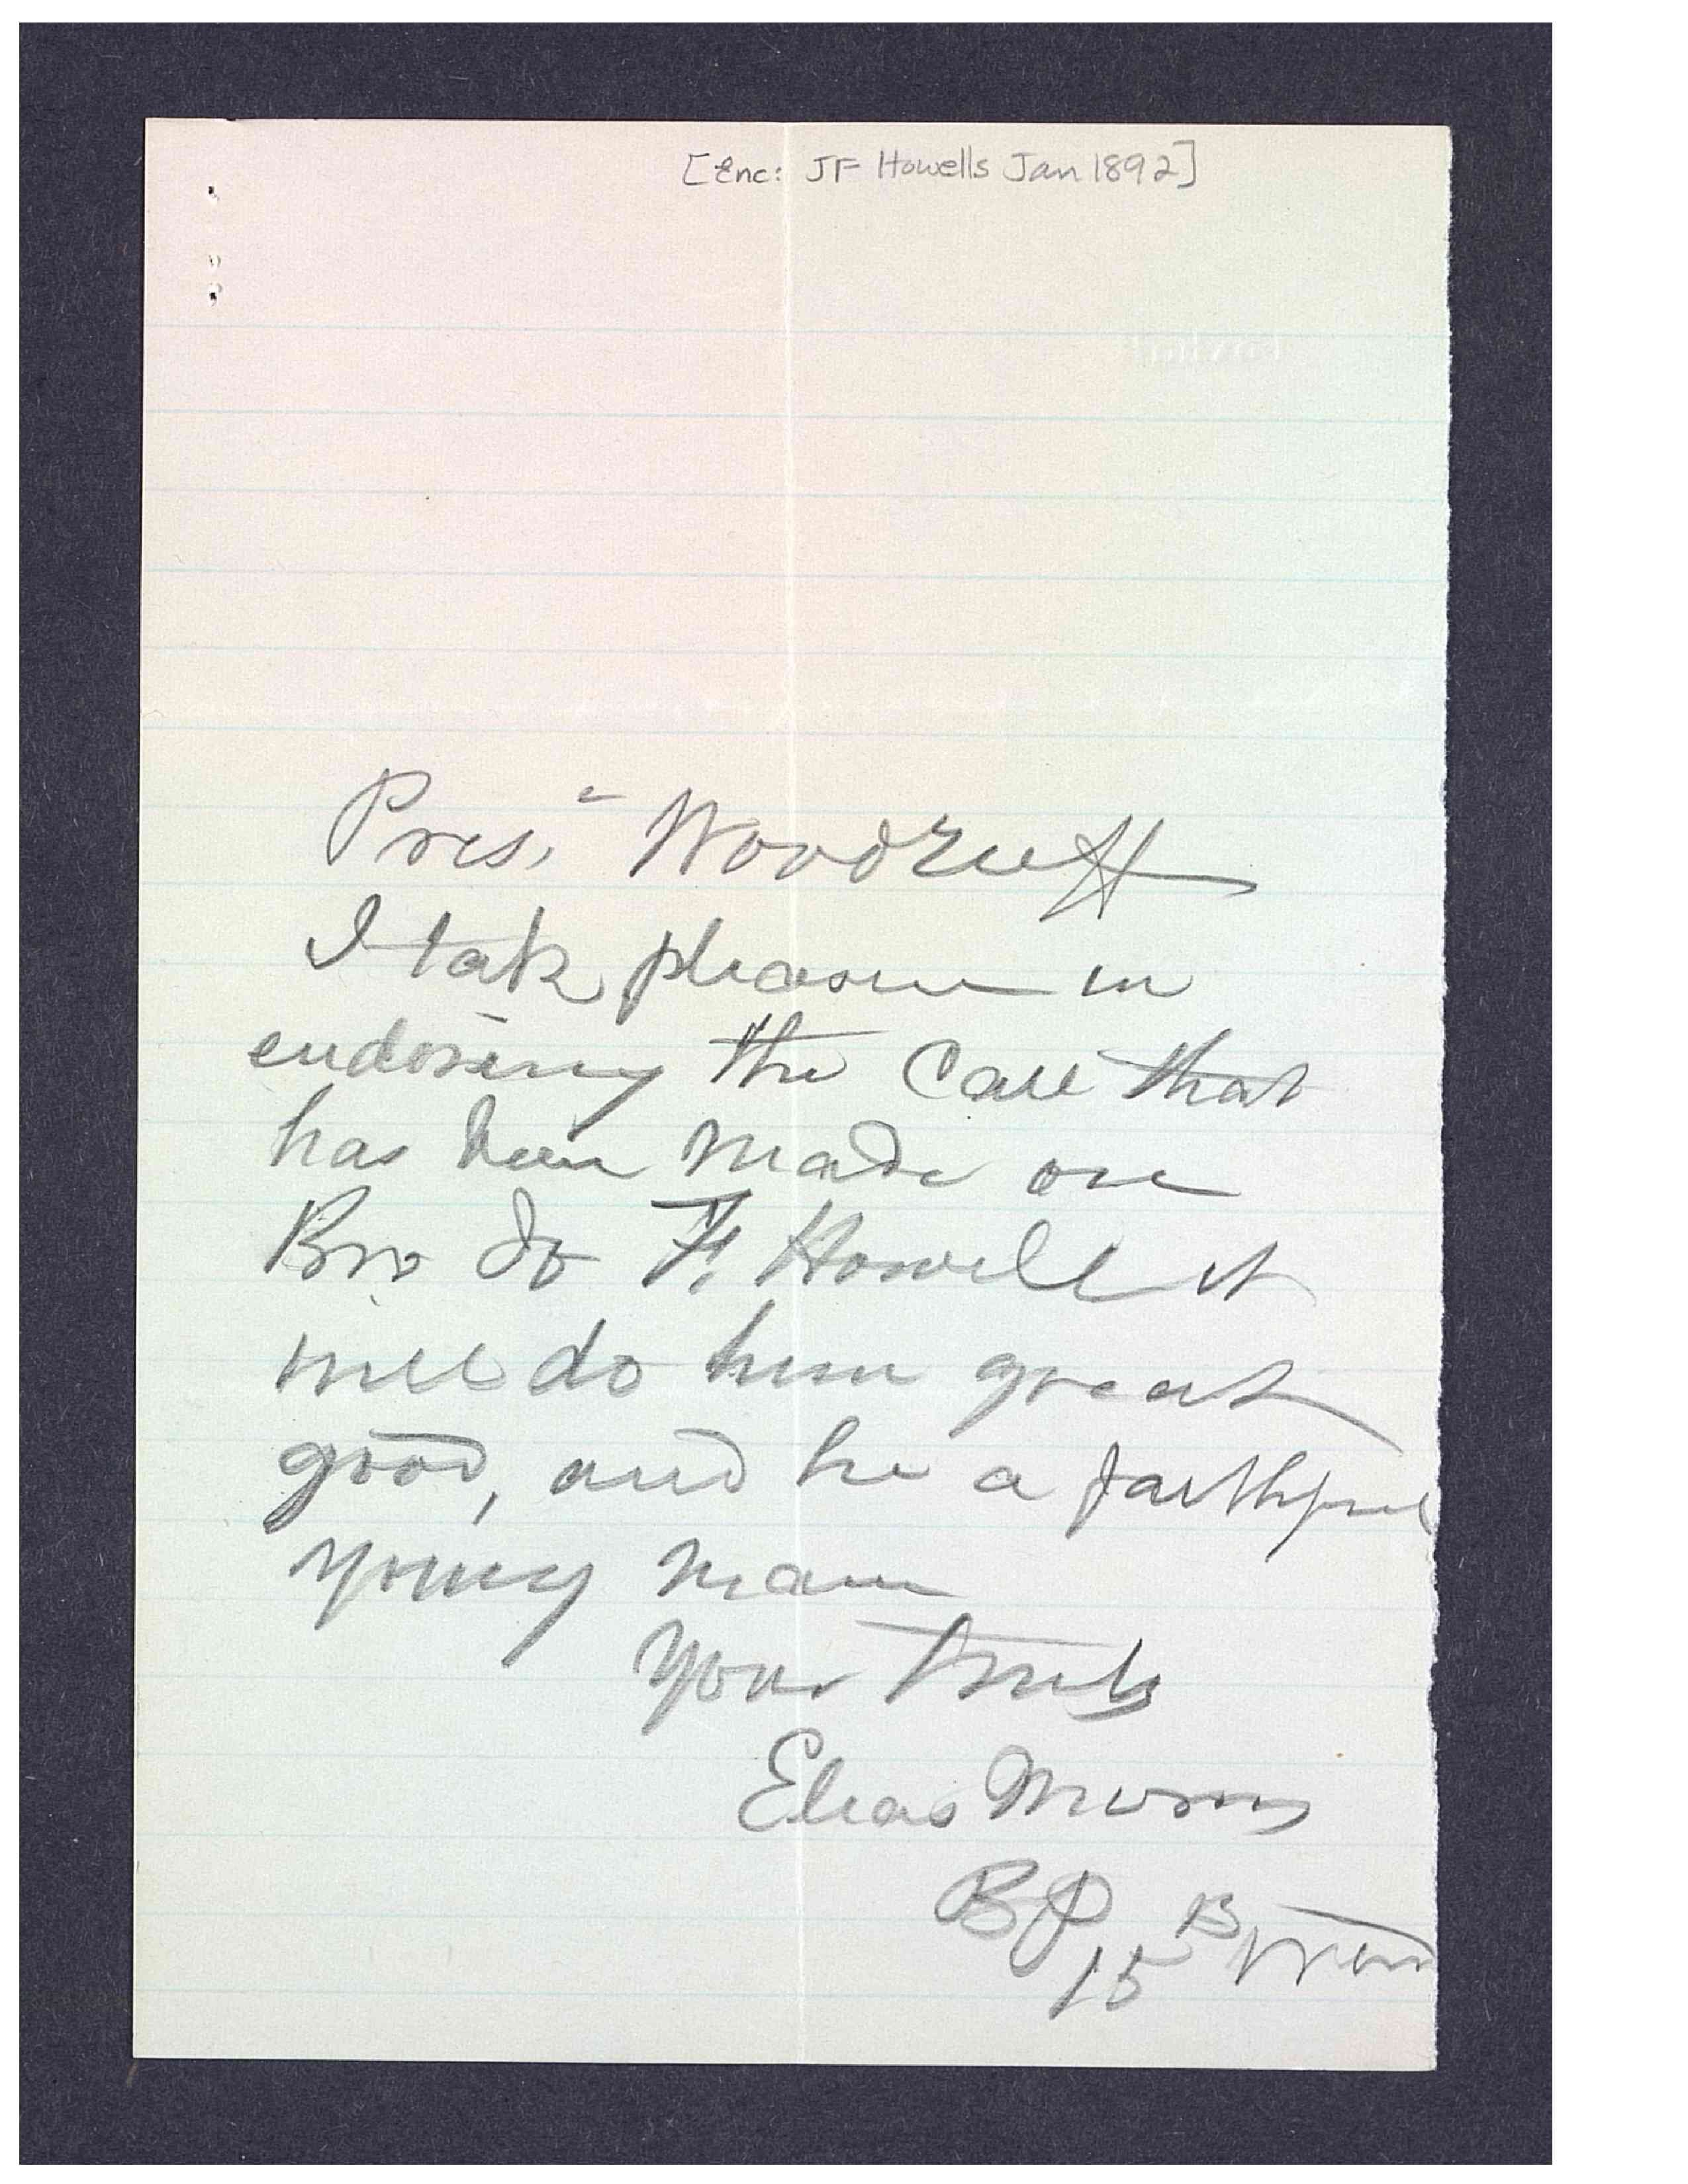 [Enc: JF Howells Jan 1892]
Pres. Woodruff
I take pleasure in
endorsing the Call that
has been made on
Bro Jo F. Howell it
will do him great
good, and he a faithful
young man
Your truly
Elias Morris
BP 15 Ward